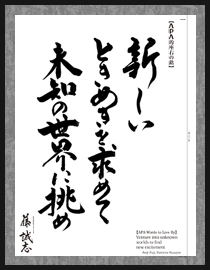 【APA的座右の銘】
新しい
ときめきを求めて
未知の世界に挑め
藤 誠志
【APA Words to Live By】
Venture into unknown
worlds to find
new excitement